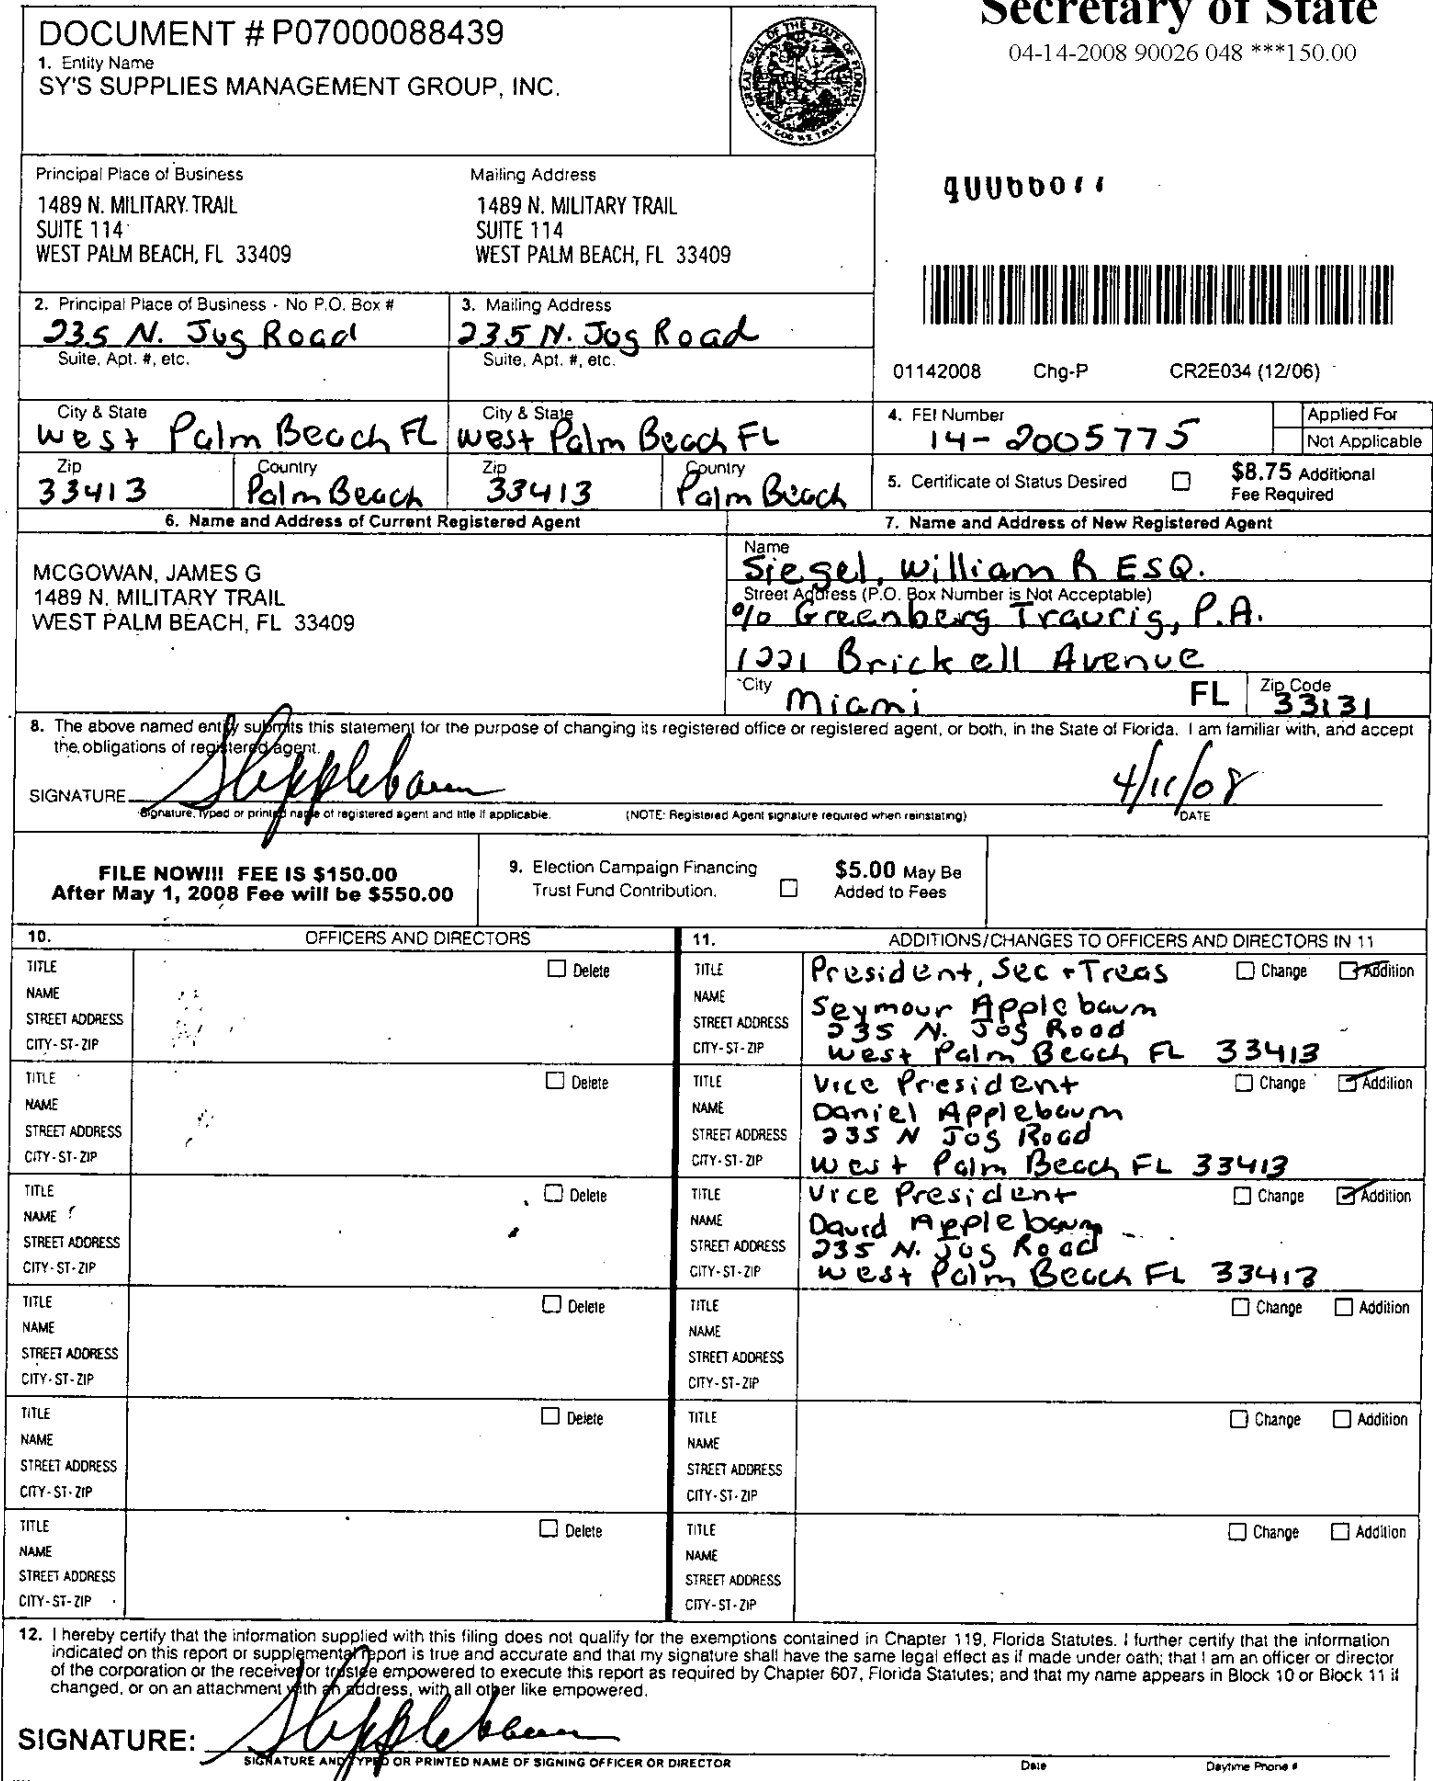 Secretary of State
04-14-2008 90026 048 ***150.00
DOCUMENT # P07000088439
1. Entity Name
SY'S SUPPLIES MANAGEMENT GROUP, INC.
GREAT SEAL OF THE STATE OF FLORIDA
IN GOD WE TRUST
Principal Place of Business
1489 N. MILITARY TRAIL
SUITE 114
WEST PALM BEACH, FL 33409
Mailing Address
1489 N. MILITARY TRAIL
SUITE 114
WEST PALM BEACH, FL 33409
2. Principal Place of Business - No P.O. Box #
235 N. Jog Road
Suite, Apt. #, etc.
3. Mailing Address
235 N. Jog Road
Suite, Apt. #, etc.
01142008 Chg-P CR2E034 (12/06)
City & State
West Palm Beach FL
City & State
West Palm Beach FL
Zip
33413
Country
Palm Beach
Zip
33413
Country
Palm Beach
4. FEI Number
14-2005775
Applied For
Not Applicable
5. Certificate of Status Desired
$8.75 Additional
Fee Required
6. Name and Address of Current Registered Agent
MCGOWAN, JAMES G
1489 N. MILITARY TRAIL
WEST PALM BEACH, FL 33409
7. Name and Address of New Registered Agent
Name
Siegel, William R ESQ.
Street Address (P.O. Box Number is Not Acceptable)
% Greenberg Traurig, P.A.
1221 Brickell Avenue
City
Miami
FL
Zip Code
33131
8. The above named entity submits this statement for the purpose of changing its registered office or registered agent, or both, in the State of Florida. I am familiar with, and accept
the obligations of registered agent.
SIGNATURE SApplebaum 4/11/08
Signature, typed or printed name of registered agent and title if applicable. (NOTE: Registered Agent signature required when reinstating) DATE
FILE NOW!!! FEE IS $150.00
After May 1, 2008 Fee will be $550.00
9. Election Campaign Financing
Trust Fund Contribution.
$5.00 May Be
Added to Fees
10. OFFICERS AND DIRECTORS
11. ADDITIONS/CHANGES TO OFFICERS AND DIRECTORS IN 11
TITLE Delete
NAME
STREET ADDRESS
CITY-ST-ZIP
TITLE President, Sec + Treas Change Addition
NAME Seymour Applebaum
STREET ADDRESS 235 N. Jog Road
CITY-ST-ZIP West Palm Beach FL 33413
TITLE Delete
NAME
STREET ADDRESS
CITY-ST-ZIP
TITLE Vice President Change Addition
NAME Daniel Applebaum
STREET ADDRESS 235 N Jog Road
CITY-ST-ZIP West Palm Beach FL 33413
TITLE Delete
NAME
STREET ADDRESS
CITY-ST-ZIP
TITLE Vice President Change Addition
NAME David Applebaum
STREET ADDRESS 235 N. Jog Road
CITY-ST-ZIP West Palm Beach FL 33413
TITLE Delete
NAME
STREET ADDRESS
CITY-ST-ZIP
TITLE Change Addition
NAME
STREET ADDRESS
CITY-ST-ZIP
TITLE Delete
NAME
STREET ADDRESS
CITY-ST-ZIP
TITLE Change Addition
NAME
STREET ADDRESS
CITY-ST-ZIP
TITLE Delete
NAME
STREET ADDRESS
CITY-ST-ZIP
TITLE Change Addition
NAME
STREET ADDRESS
CITY-ST-ZIP
12. I hereby certify that the information supplied with this filing does not qualify for the exemptions contained in Chapter 119, Florida Statutes. I further certify that the information
indicated on this report or supplemental report is true and accurate and that my signature shall have the same legal effect as if made under oath; that I am an officer or director
of the corporation or the receiver or trustee empowered to execute this report as required by Chapter 607, Florida Statutes; and that my name appears in Block 10 or Block 11 if
changed, or on an attachment with an address, with all other like empowered.
SIGNATURE: SApplebaum
SIGNATURE AND TYPED OR PRINTED NAME OF SIGNING OFFICER OR DIRECTOR Date Daytime Phone #